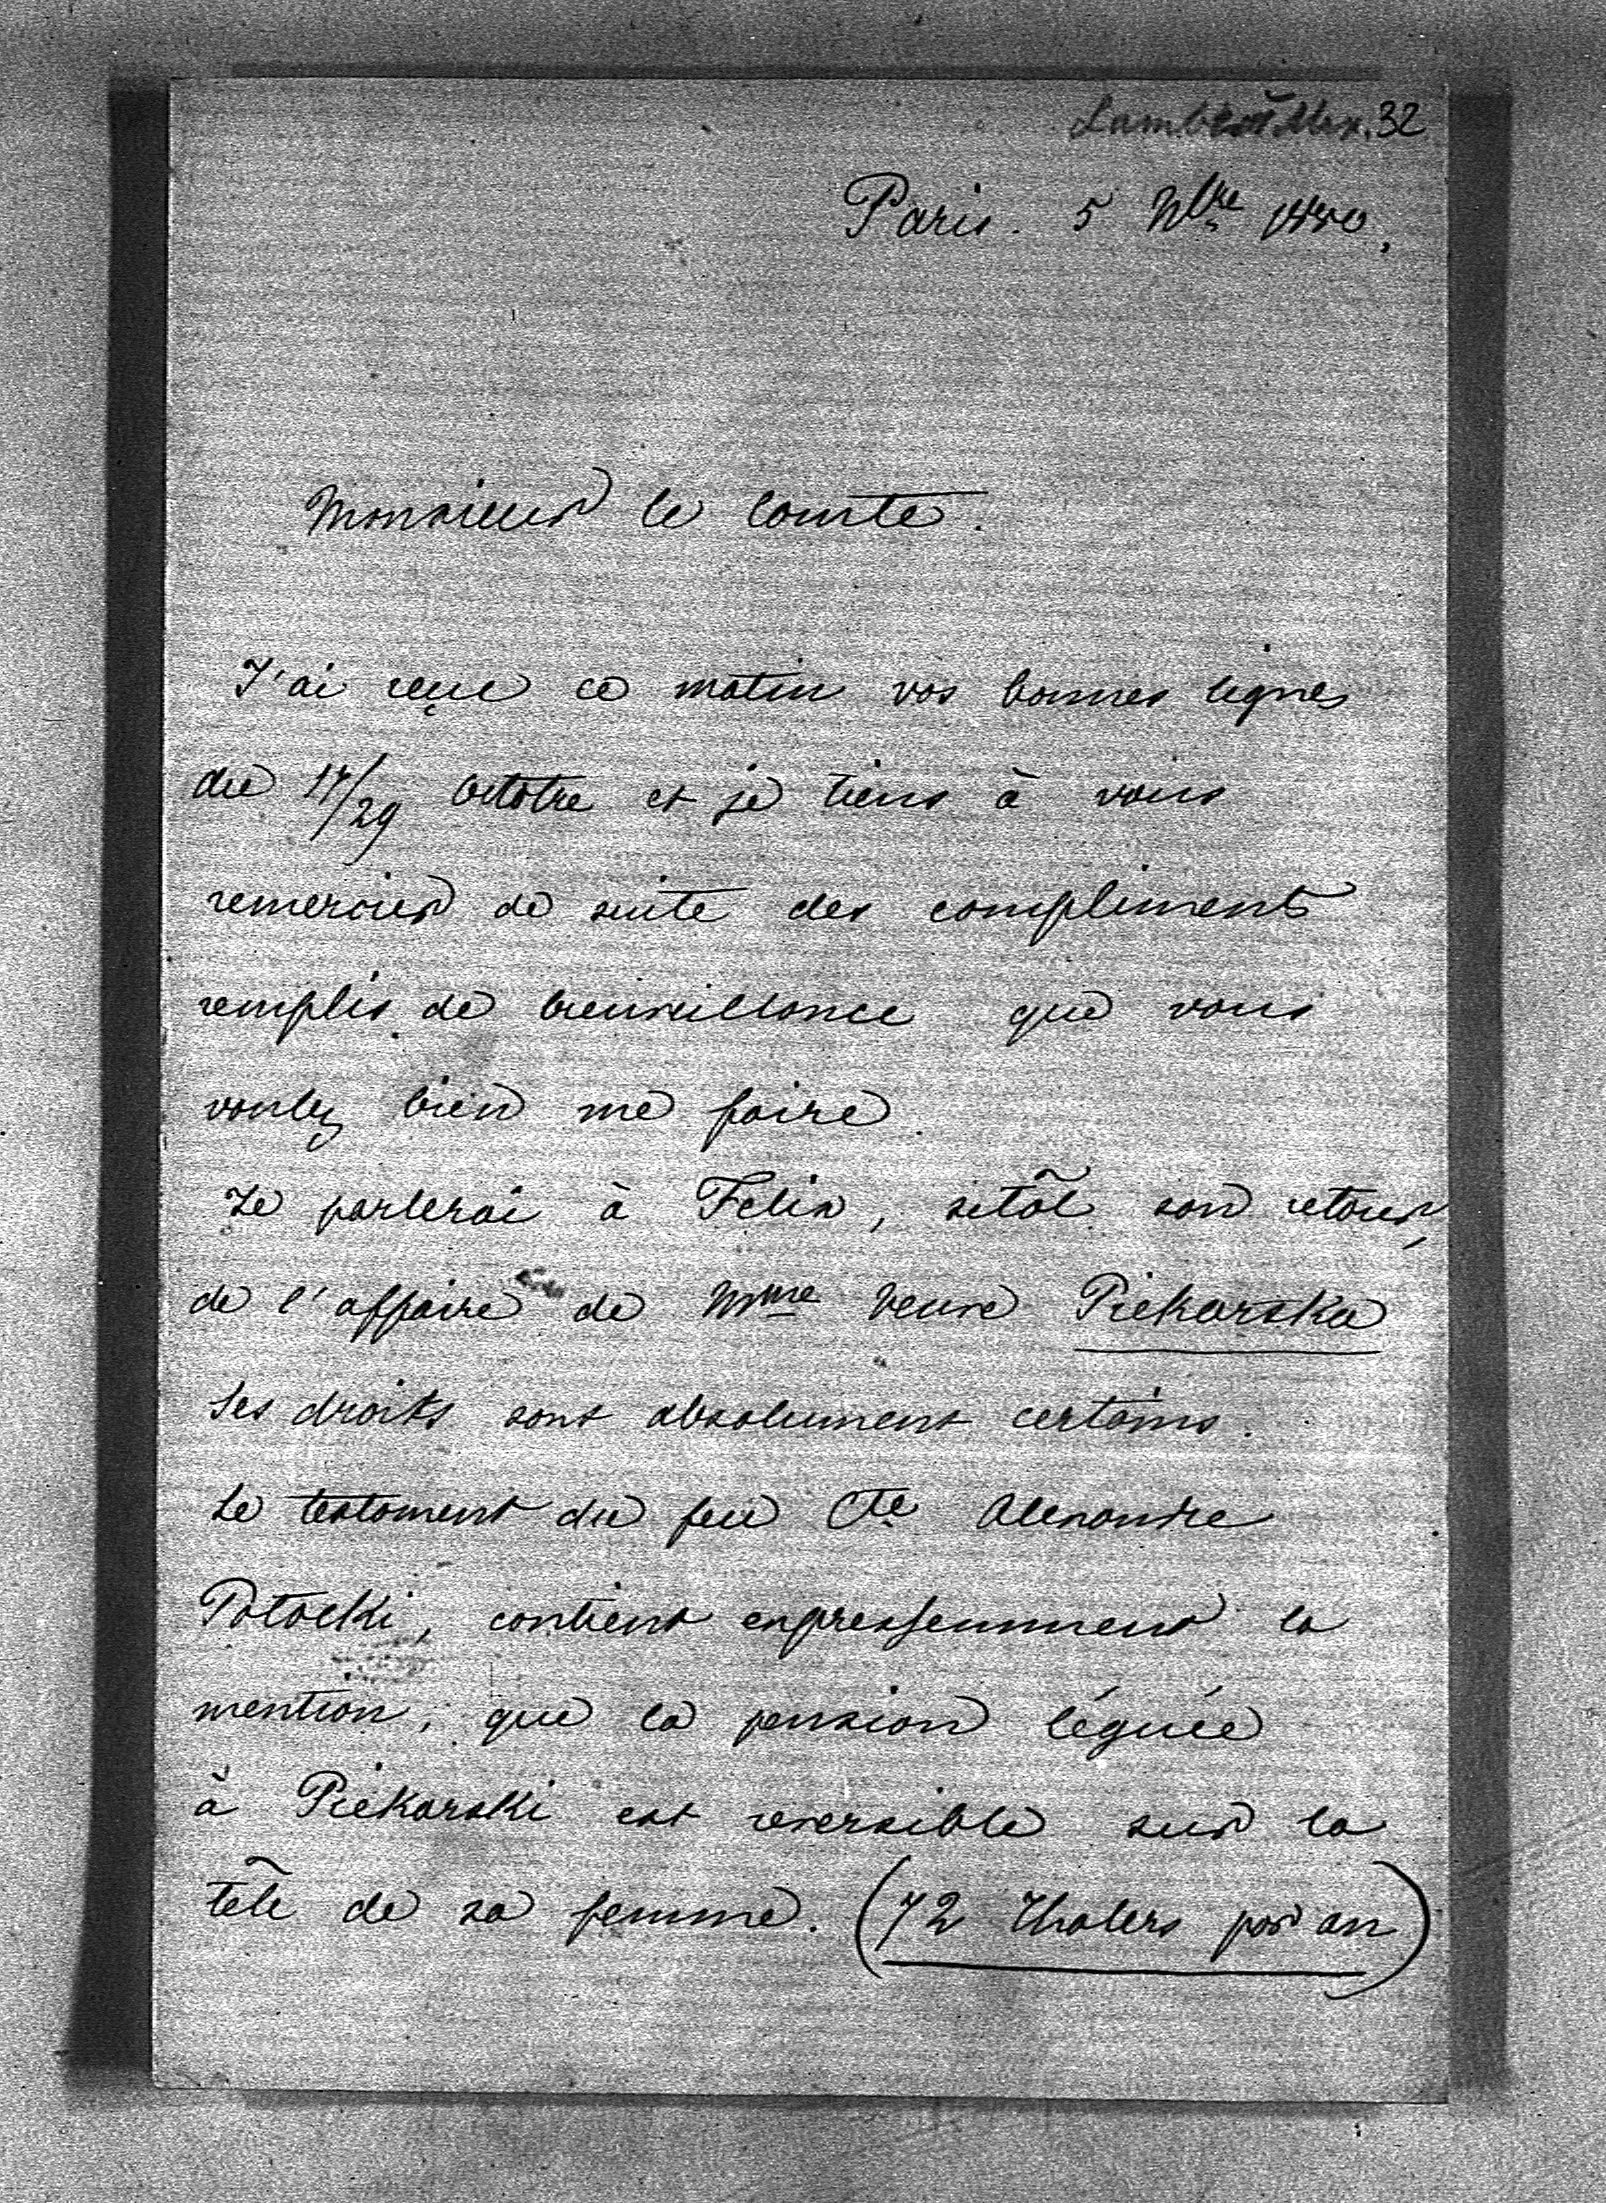 32
Paris. 5 Nbre 1880.
Monsieur le Comte.
J'ai reçue ce matin vos bonnes lignes
du 17/29 Octobre et je tiens à vous
remercier de suite des compliments
remplis de bienveillance que vous
voulez bien me faire.
Je parlerai à Felix, sitôt son retour,
de l'affaire de Mme Veuve Piekarska
Ses droits sont absolument certains.
Le testament du feu Cte Alexandre
Potocki, contient expressemment la
mention, que la pension léguée
à Piekarski est reversible sur la
tête de sa femme. (72 Thalers par an)